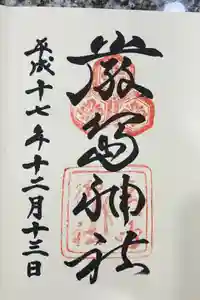 嚴島神社
平成十七年十二月十三日